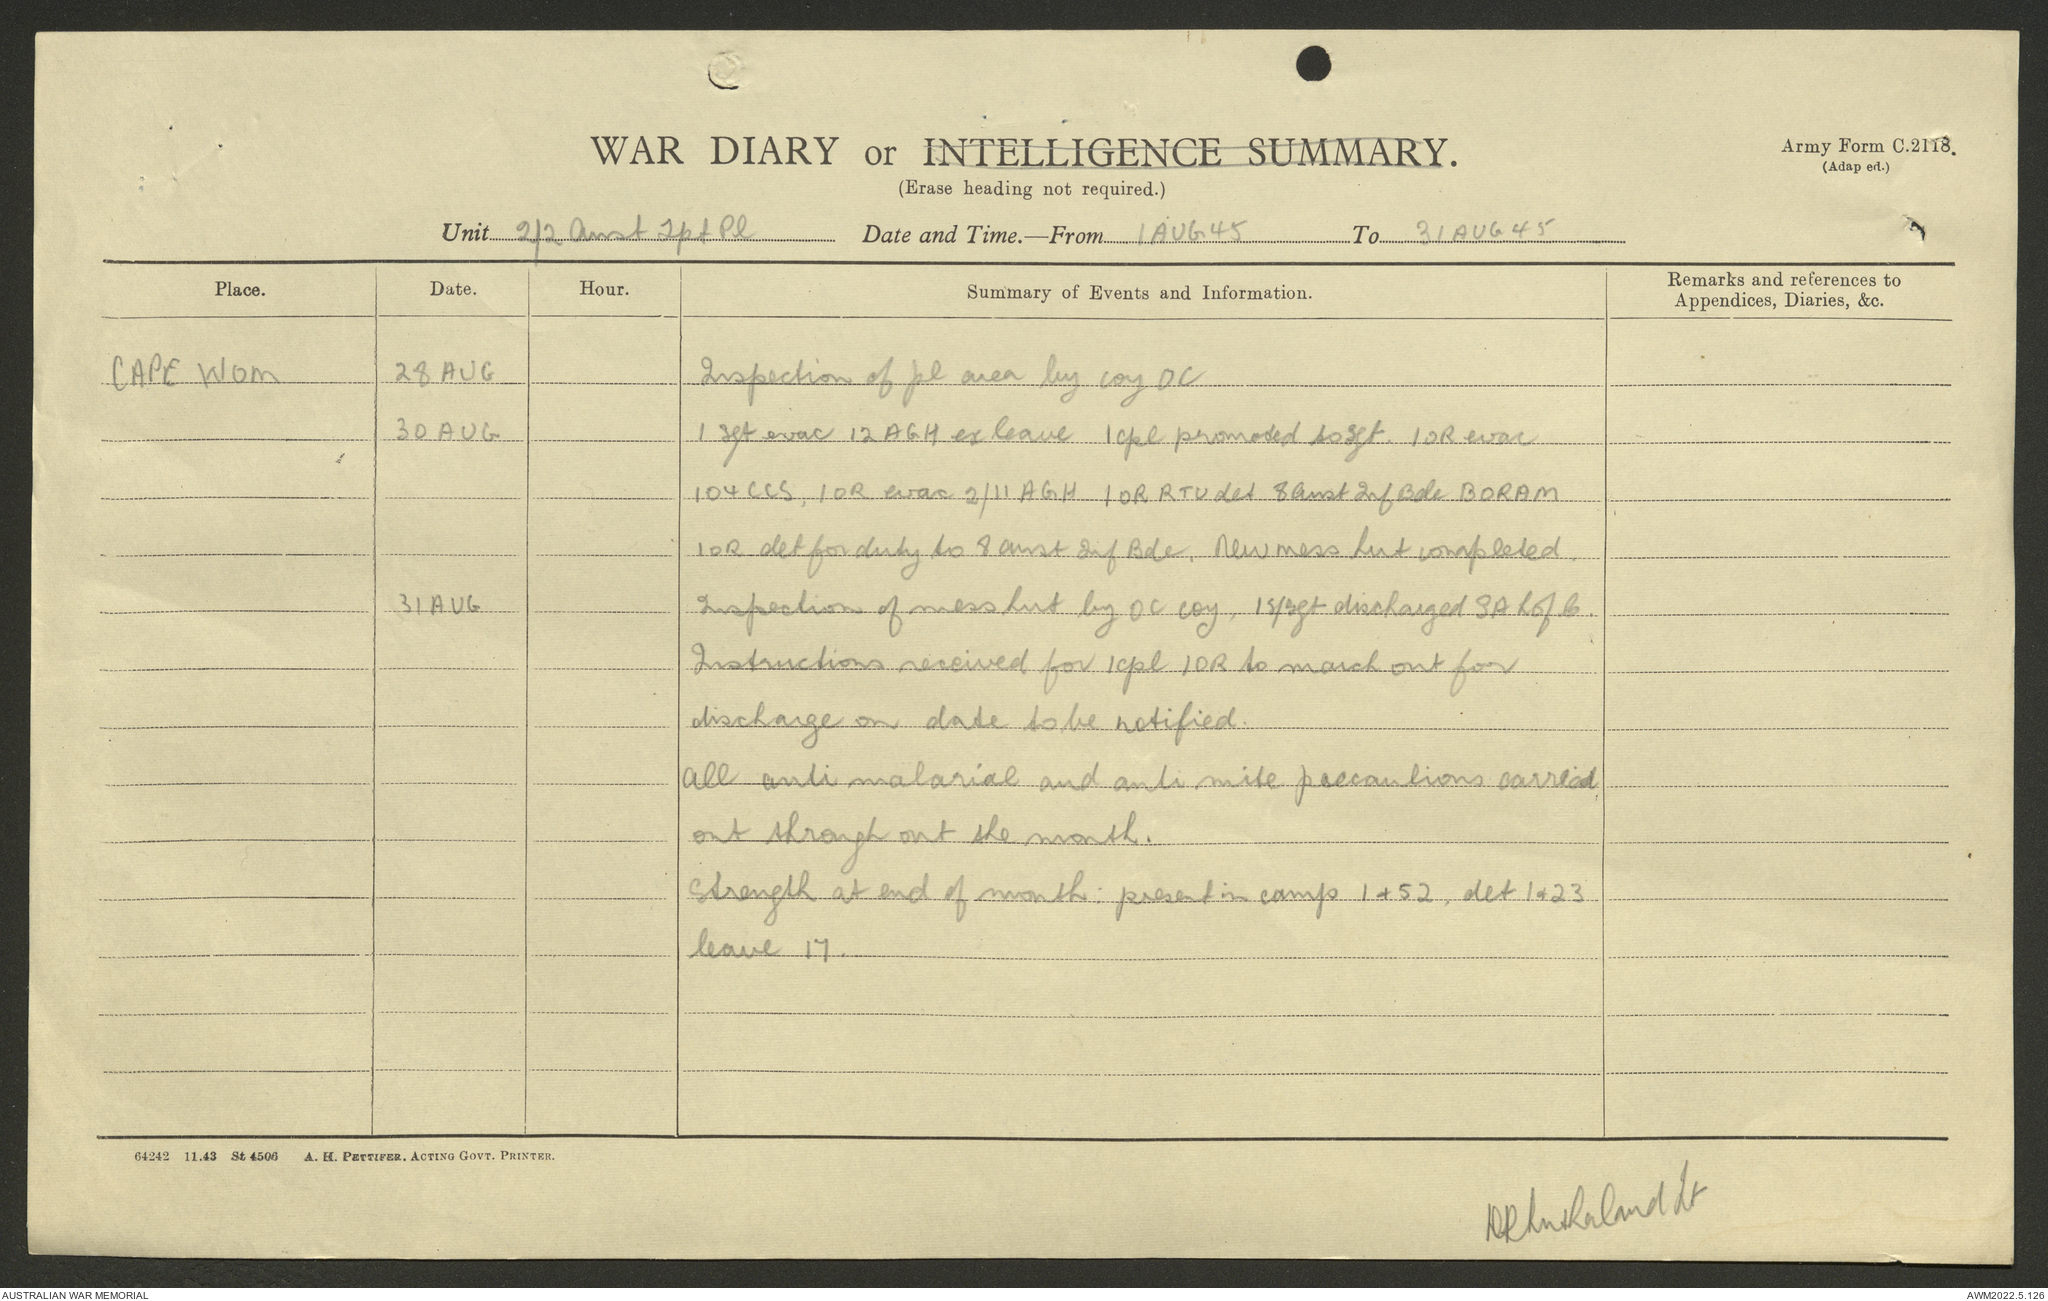 WAR DIARY or INTELLIGENCE SUMMARY.
Army Form C.2118.
(Adapted.)
(Erase heading not required.)
Unit 2/2 Aust Tpt Pl Date and Time.—From 1 AUG 45 To 31 AUG 45
Place. Date. Hour. Summary of Events and Information. Remarks and references to Appendices, Diaries, &c.
CAPE WOM 28 AUG Inspection of pl area by coy OC
30 AUG 1 Sgt evac 12 AGH ex leave 1 cpl promoted to Sgt. 1 OR evac
104 CCS, 1 OR evac 2/11 AGH 1 OR RTU det 8 Aust Inf Bde BORAM
1 OR det for duty to 8 Aust Inf Bde. New mess hut completed.
31 AUG Inspection of mess hut by OC coy, 1 S/Sgt discharged SA L of C.
Instructions received for 1 cpl 1 OR to march out for
discharge on date to be notified.
All anti malarial and anti mite precautions carried
out through out the month.
Strength at end of month: present in camp 1+52, det 1+23
leave 17.
64242 11.43 St 4506 A. H. PETTIFER, ACTING GOVT. PRINTER.
Lt
AUSTRALIAN WAR MEMORIAL
AWM2022.5.126